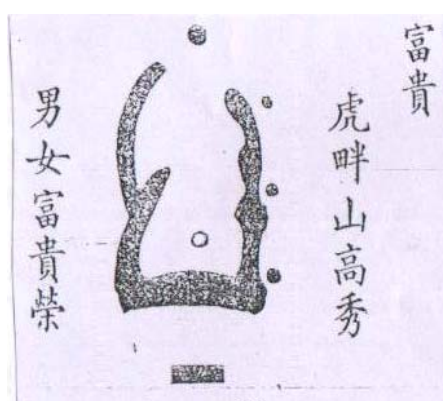 富貴
虎畔山高秀
男女富貴榮